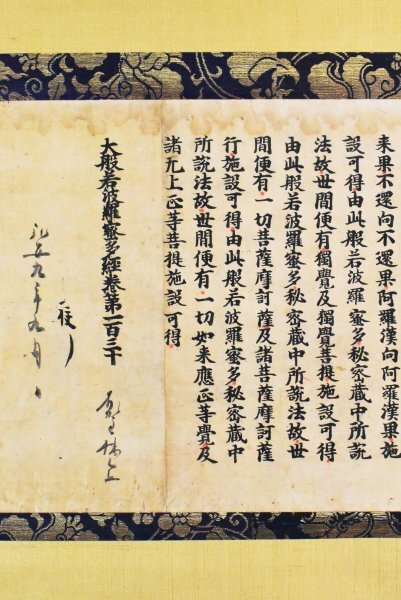 来果不還向不還果阿羅漢向阿羅漢果施
設可得由此般若波羅蜜多秘密蔵中所説
法故世間便有獨覺及獨覺菩提施設可得
由此般若波羅蜜多秘密蔵中所説法故世
間便有一切菩薩摩訶薩及諸菩薩摩訶薩
行施設可得由此般若波羅蜜多秘密蔵中
所説法故世間便有一切如来應正等覺及
諸无上正等菩提施設可得
大般若波羅蜜多經巻第二百三十